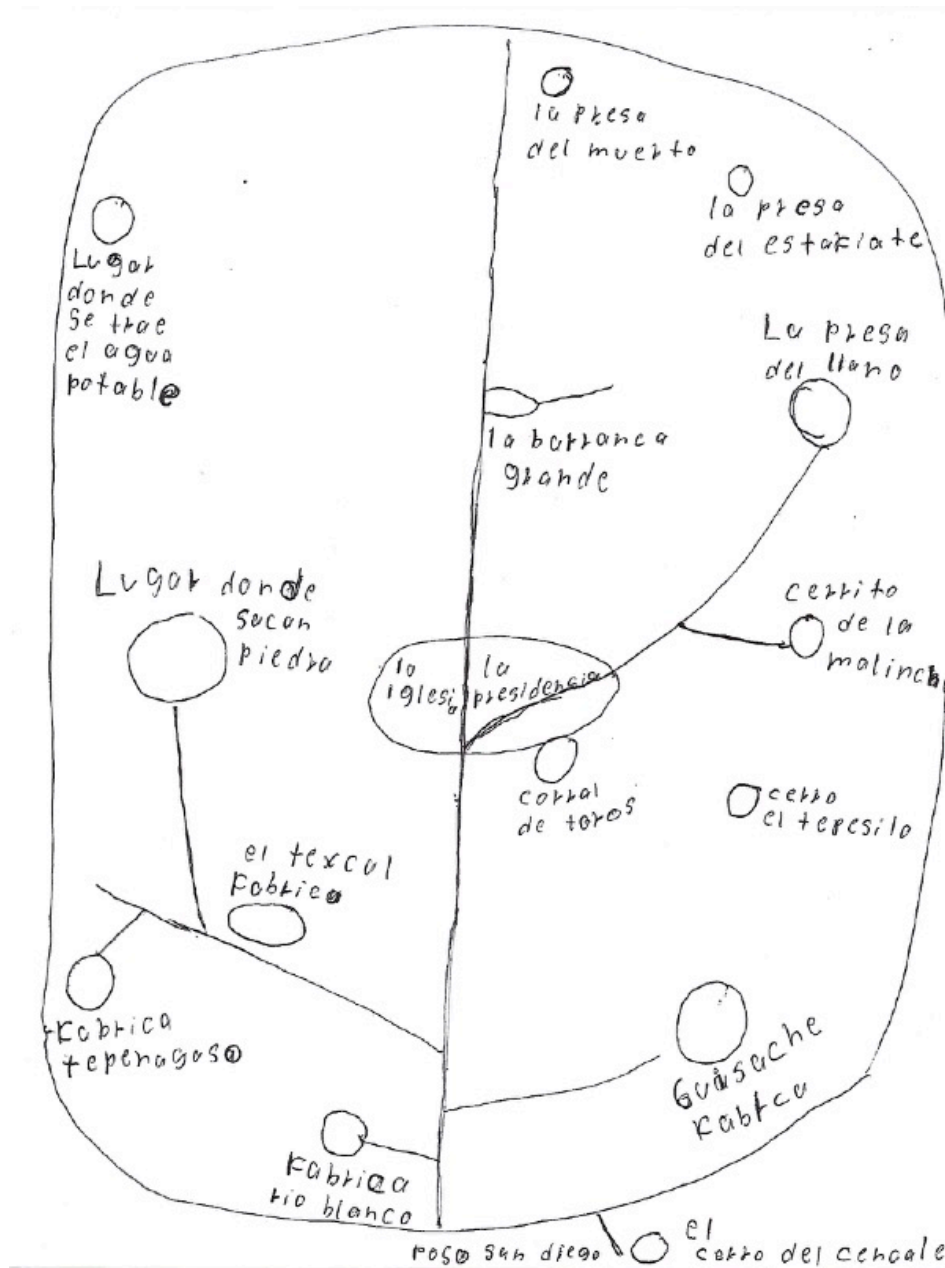 la presa
del muerto
la presa
del estafiate
Lugar
donde
se trae
el agua
potable
La presa
del llano
la barranca
grande
Lugar donde
sacan
piedra
cerrito
de la
malinch
la
iglesia
la
presidencia
corral
de toros
cerro
el tepesilo
el texcal
Fabrica
Fabrica
tepenagaso
Guisache
Fabrca
Fabrica
rio blanco
poso san diego
el
cerro del cencale